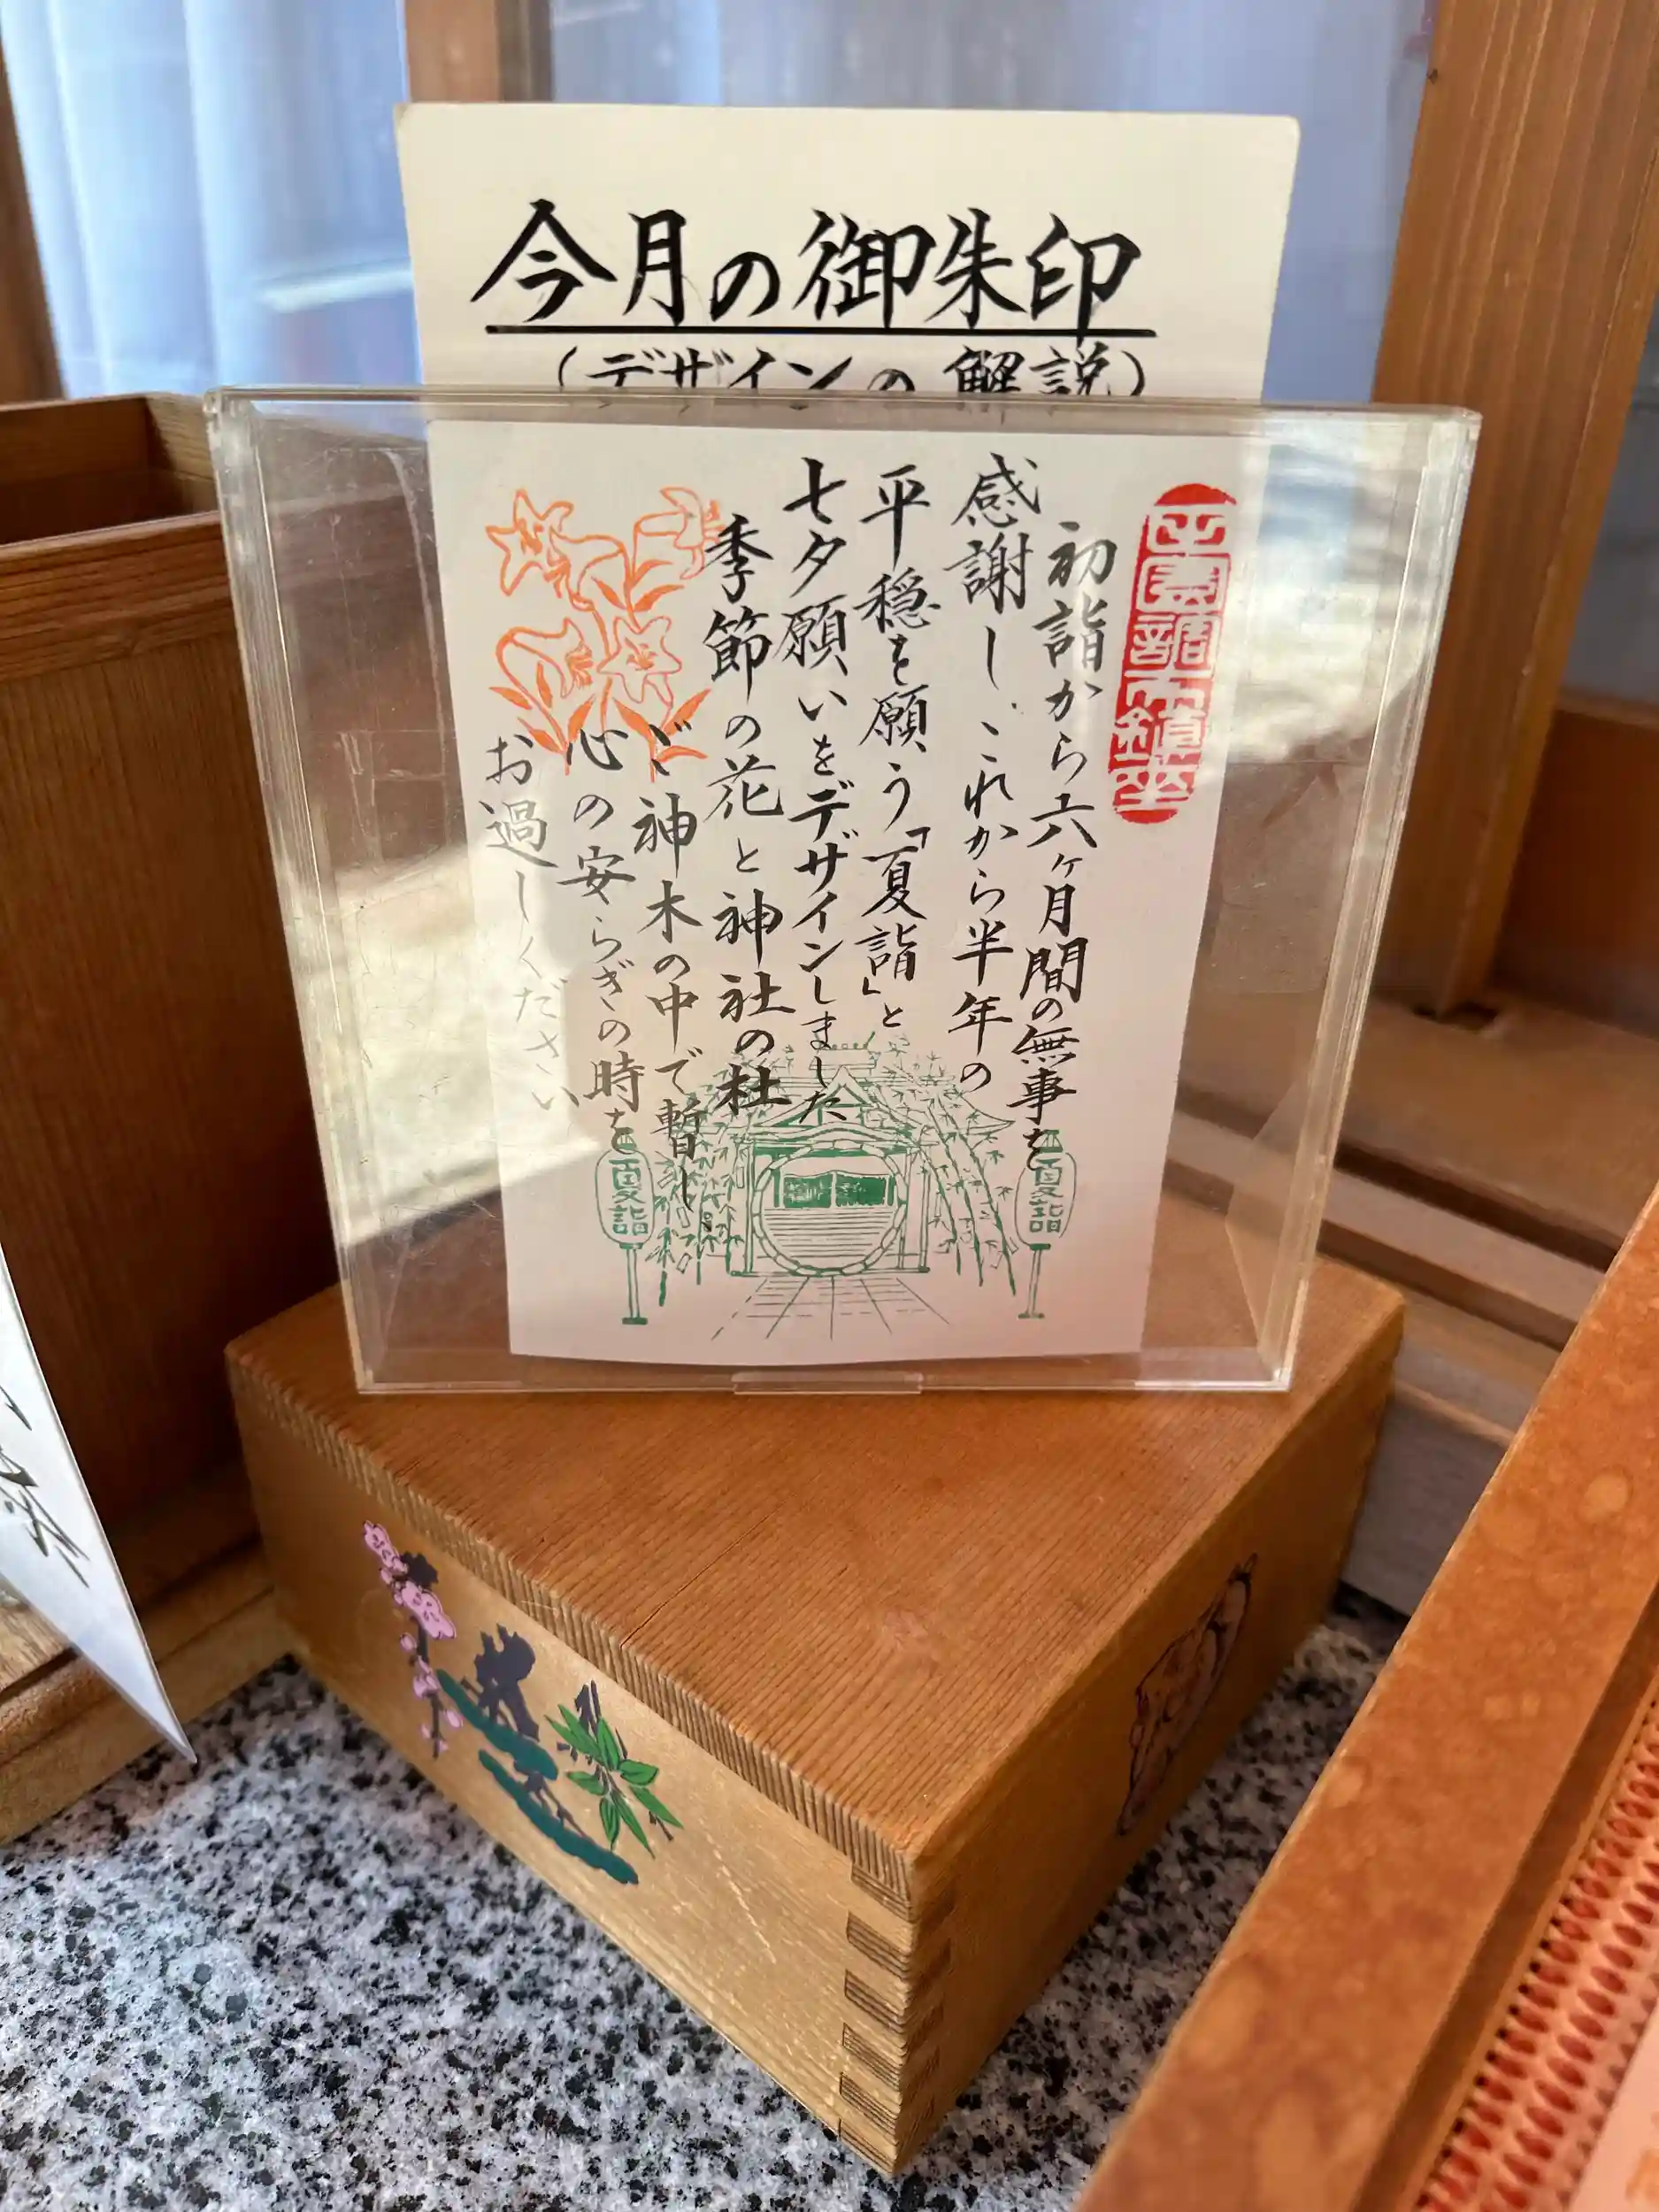 今月の御朱印
（デザインの解説）
初詣から六ヶ月間の無事を
感謝し、これから半年の
平穏を願う「夏詣」と
七夕願いをデザインしました
季節の花と神社の杜
ご神木の中で暫し
心の安らぎの時を
お過しください
夏詣
夏詣